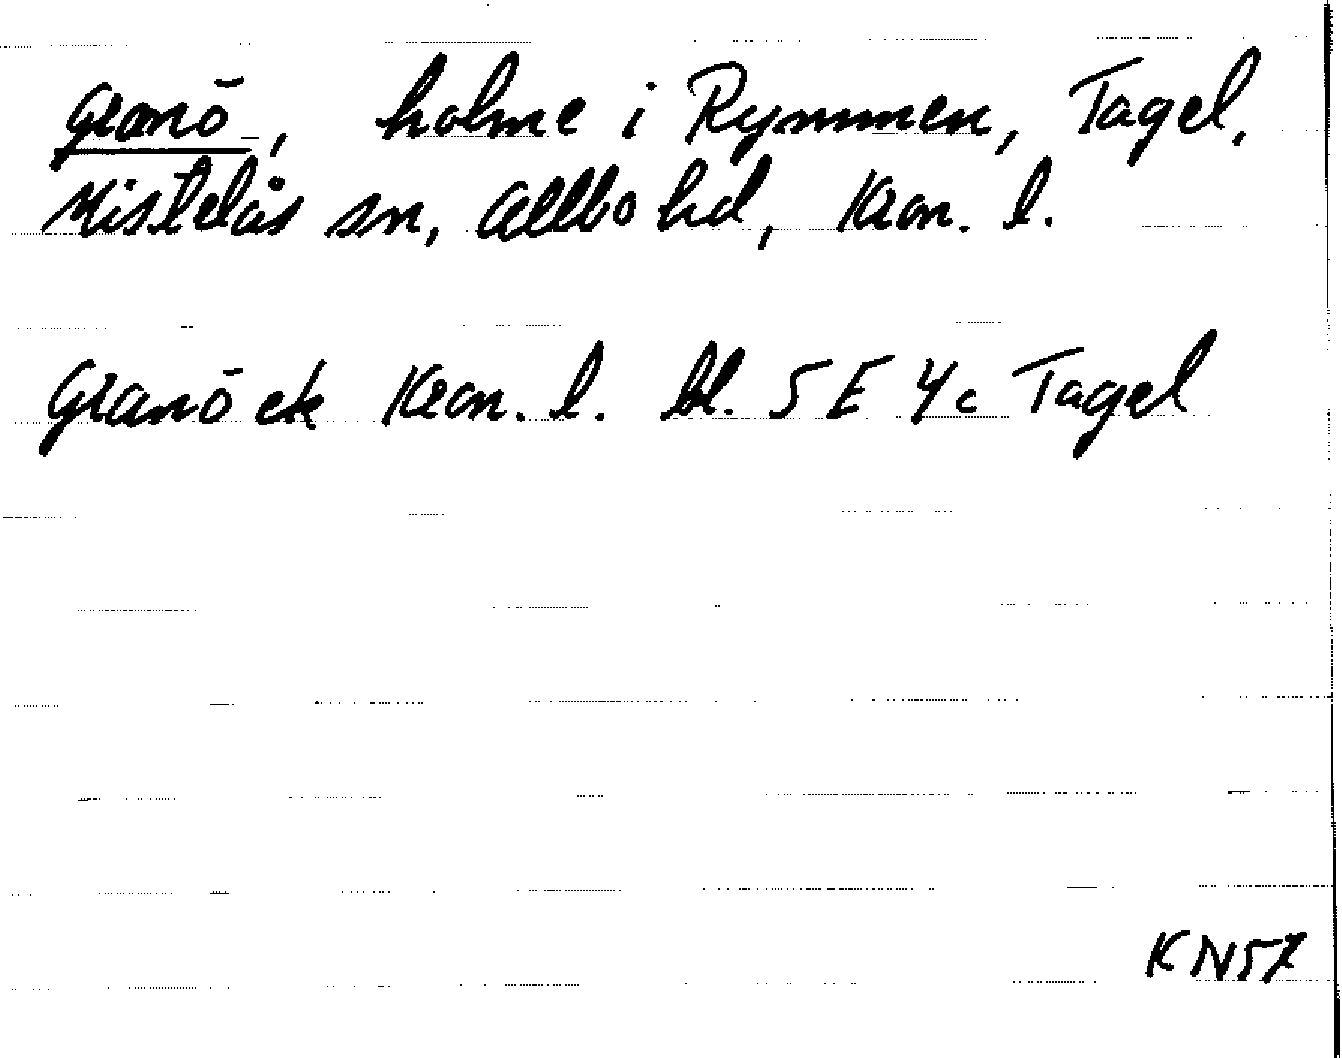 Granö, holme i Rymmen, Tagel,
Mistelås sn, Allbo hd, Kron. l.
Granö ek Kron. l. bl. 5 E 4c Tagel
KN57